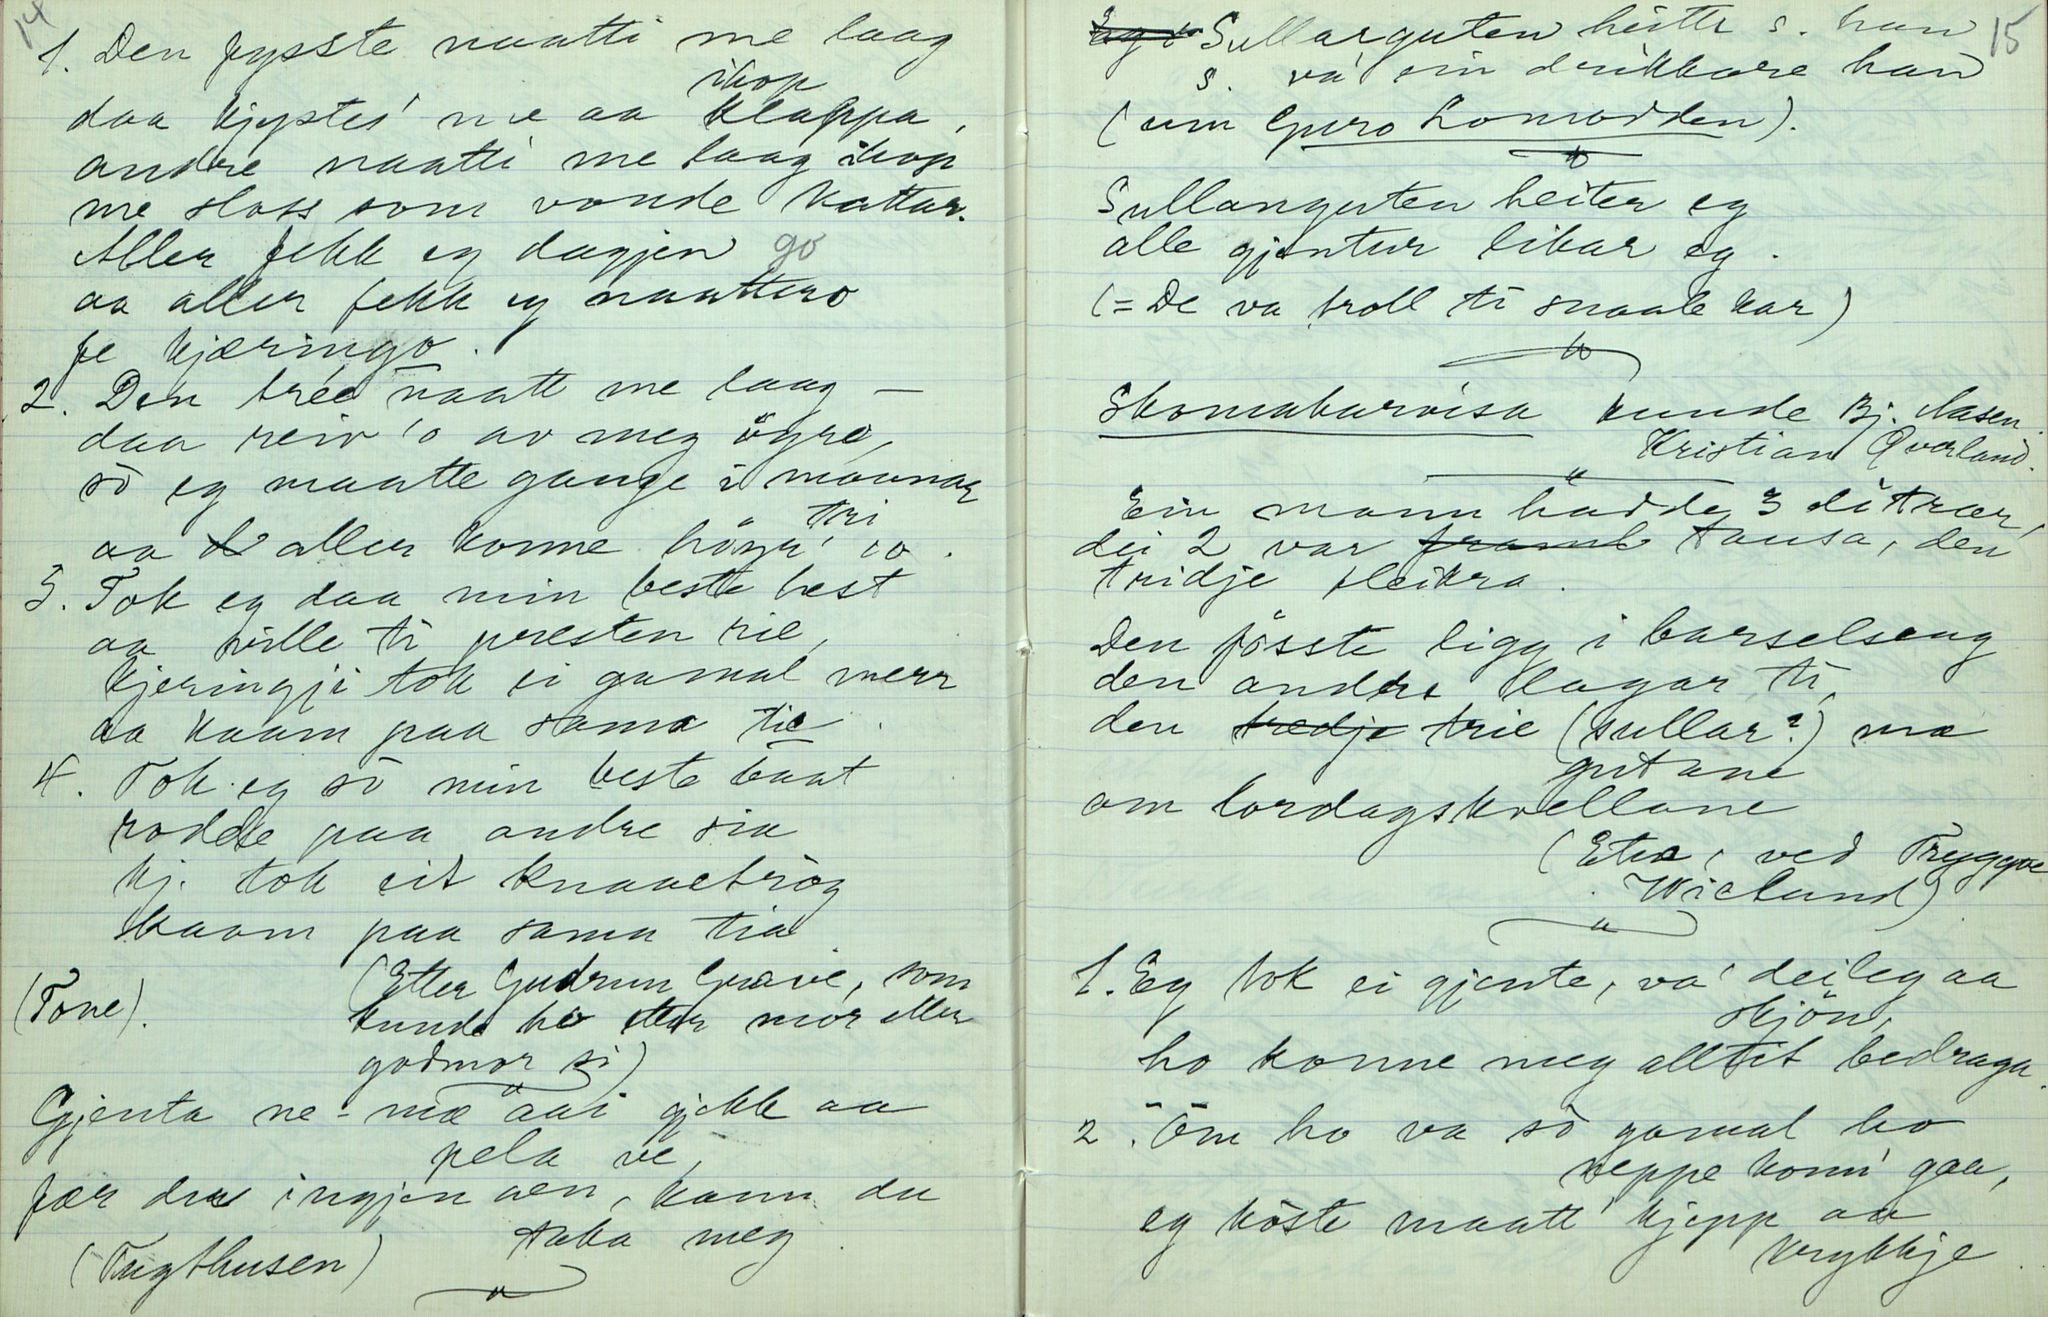 14
1. Den fysste naatti me laag
ihop
daa kjystes' me aa klappa,
andre naatti me laag ihop
me sloss som vonde kattar.
Aller fekk eg dagjen go
aa aller fekk eg naattero
fe kjæringo.
2. Den tree naatt me laag —
daa reiv 'o av meg öyro,
so eg maatte gange i mounar
tri
aa aller konne höyr' io.
3. Tok eg daa min beste hest
aa ville ti presten rie,
kjeringji tok ei gamal merr
aa kaam paa sama tie.
4. Tok eg so min beste baat
rodde paa andre sia
kj. tok eit knaaetrög
kaam paa sama tia.
(Tone).
(Etter Gudrun Græve, som
kunde ho etter mor eller
godmor si)
Gjenta ne-mæ aai gjekk aa
pela ve,
fær du ingjen aen, kann du
taka meg.
(Tugthusen)
15
Sullarguten heitte s. han
s. va' ein drikkare han
(um Guro Lomodden).
Sullanguten heiter eg
alle gjentur likar eg.
(= De va troll ti snaale kar)
Skomakarvisa kunde Bj. Aasen.
Kristian Qværland.
Ein mann hadde 3 dötrar,
dei 2 var tausa, den
tridje fleikra.
Den fösste ligg i barselseng
den andre lagar ti
den tredje trie (sullar?) mæ
gutane
om lordagskvellane
(Etne, ved Tryggve
Wicklund)
1. Eg tok ei gjente, va' deileg aa
skjön,
ho konne meg alltit bedraga.
2. Öm ho va so gamal ho
neppe konn' gaa,
eg köste maatt' kjepp aa
krykkje.